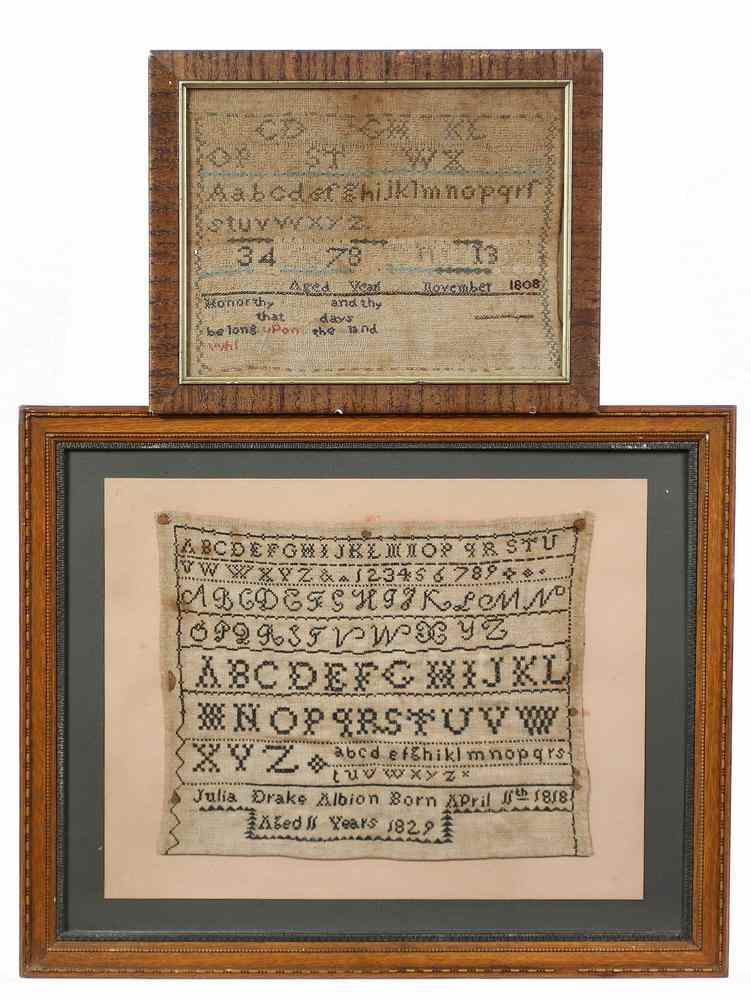 CD GH KL
OP ST WX
Aabcdefghijklmnopqrſ
stuvwxyz
34 78 11 13
Aged Years November 1808
Honor thy and thy
that days
be long upon the land
Whi
ABCDEFGHIJKLMNOPQRSTU
VWWXYZ&123456789
ABCDEFGHIJKLMN
OPQRSTVWXYZ
ABCDEFGHIJKL
MNOPQRSTUVW
XYZ abcdefghiklmnopqrs
tuvwxyz
Julia Drake Albion Born April 11th 1818
Aged 11 Years 1829